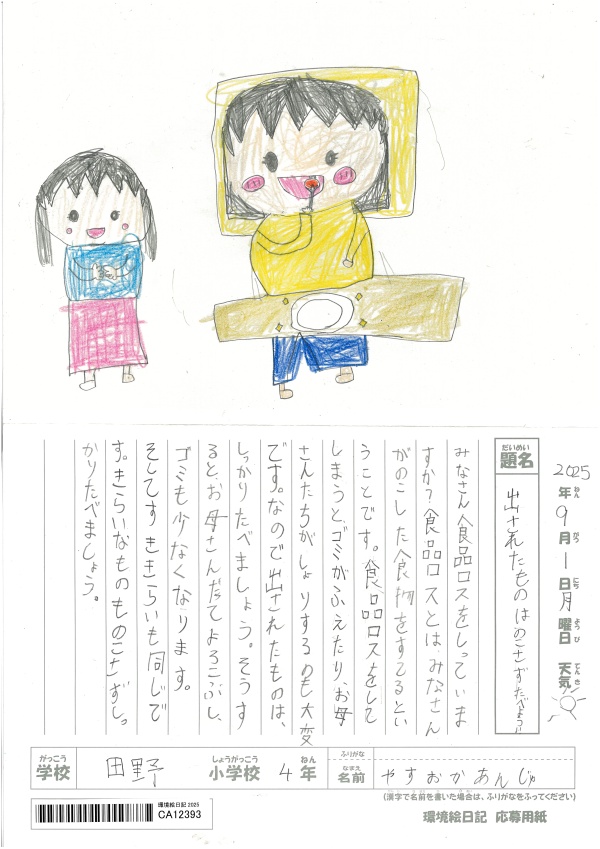 2025年9月1日月曜日 天気
ねん がつ にち ようび てんき
だいめい
題名
出されたものはのこさずたべよう!!
みなさん食品ロスをしっていま
すか?食品ロスとは、みなさん
がのこした食物をすてるとい
うことです。食品ロスをして
しまうと、ゴミがふえたり、お母
さんたちがしょりするのも大変
です。なので出されたものは、
しっかりたべましょう。そうす
るとお母さんだてよろこぶし、
ゴミも少なくなります。
そしてすききらいも同じで
す。きらいなものものこさずしっ
かりたべましょう。
がっこう しょうがっこう ねん ふりがな
学校 田野 小学校 4年 なまえ 名前 やすおかあんじゅ
(漢字で名前を書いた場合は、ふりがなをふってください)
環境絵日記 2025
CA12393
環境絵日記 応募用紙